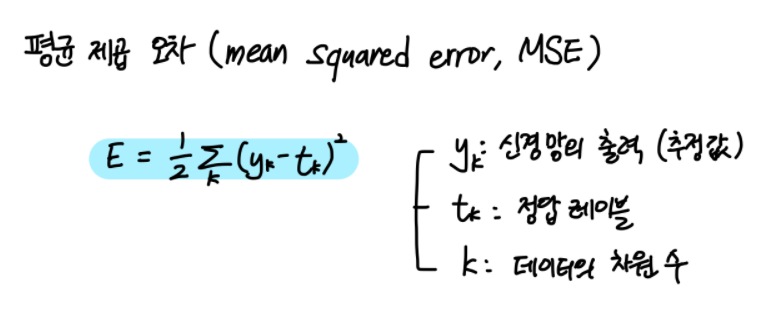 평균 제곱 오차 (mean squared error, MSE)
E = ½ Σₖ (yₖ - tₖ)²
yₖ: 신경망의 출력 (추정값)
tₖ : 정답 레이블
k: 데이터의 차원 수